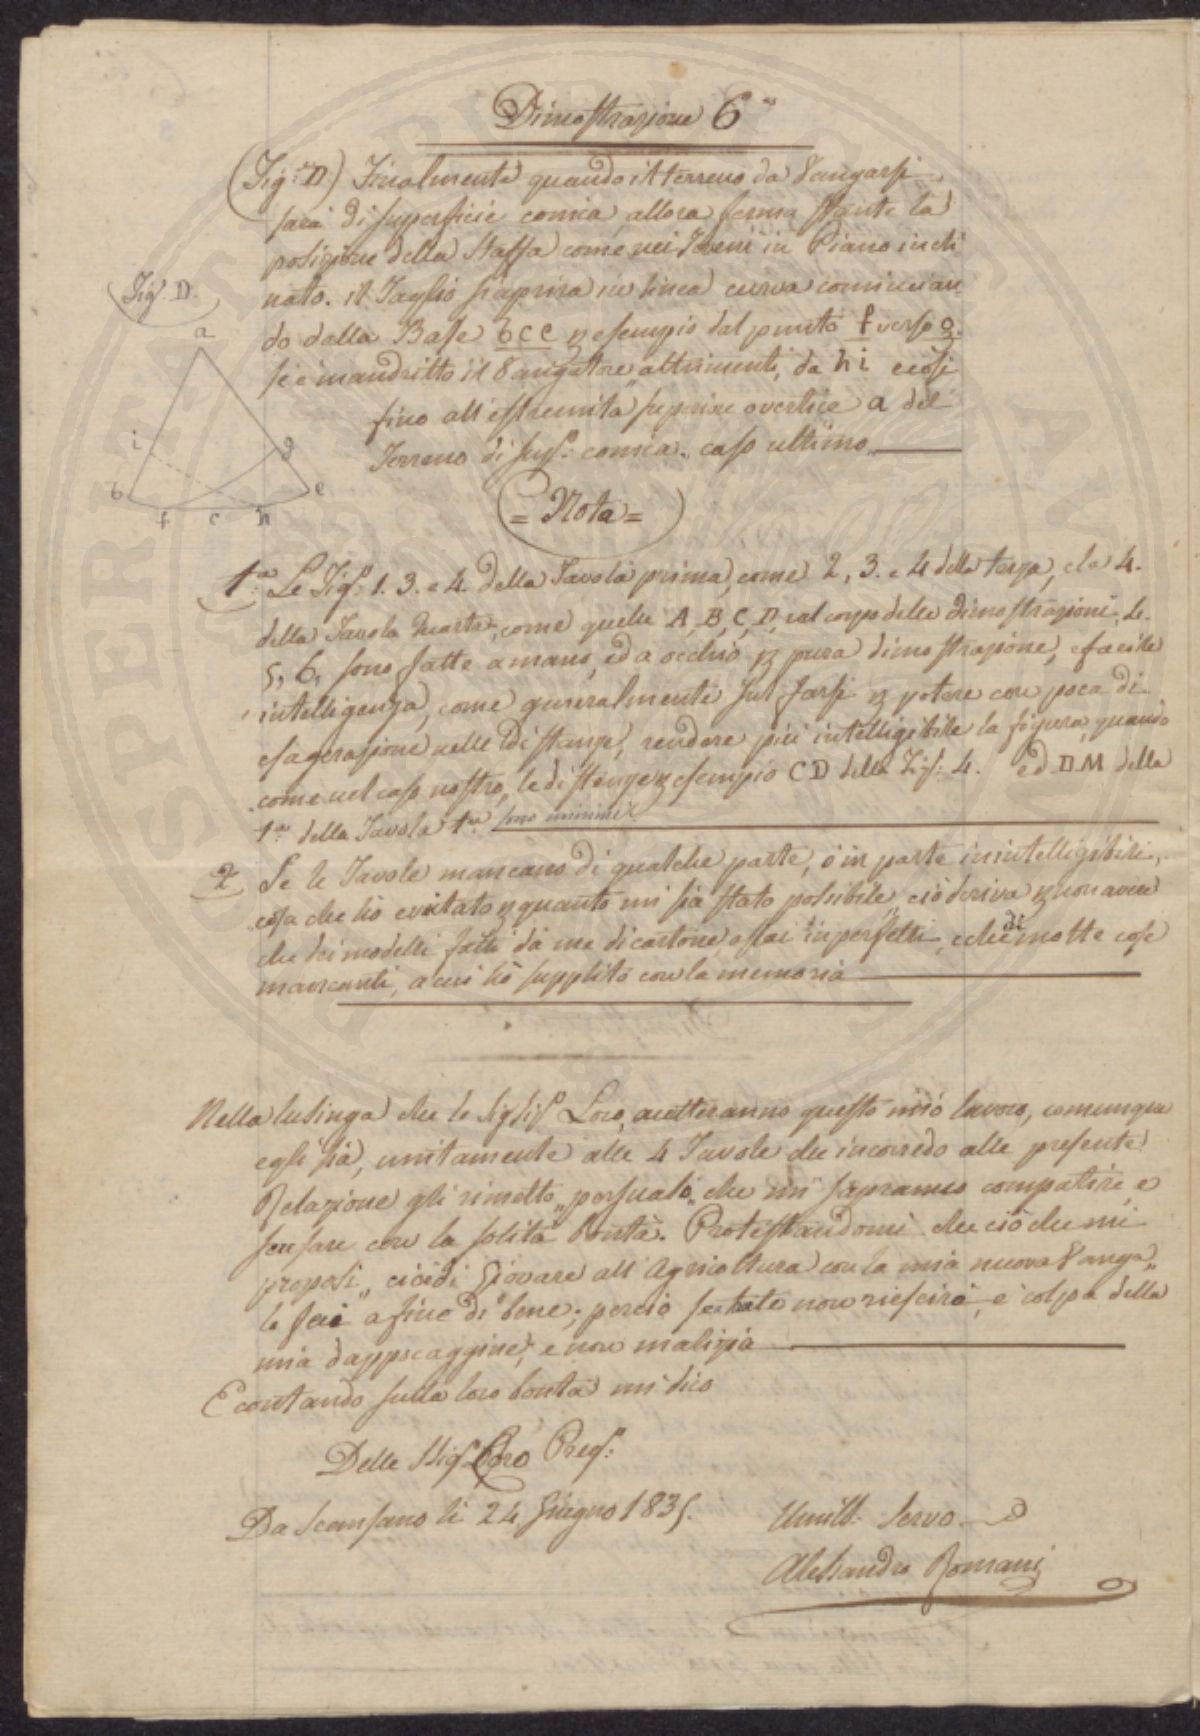 Dimostrazione 6ª
(Fig: D) Finalmente quando il terreno da Vangarsi
sarà di superficie conica, allora ferma stante la
posizione della Staffa come nei Terreni in Piano incli-
nato. il Taglio si aprirà in linea curva cominciando
do dalla Base b c e p esempio dal punto f verso g.
se è mandritto il Vangatore, altrimenti, da h i e così
fino all'estremità superiore o vertice a del
Terreno di sup: conica. caso ultimo.
Fig. D.
a
i
g
b
e
f c h
= Nota =
1ª Le Fig: 1. 3. e 4. della Tavola prima, come 2, 3. e 4 della terza, e la 4.
della Tavola Quarta, come quelle A, B, C, D, nel corpo delle dimostrazioni 4.
5, 6, sono fatte a mano, ed a occhio p pura dimostrazione, e facile
intelligenza, come generalmente suol farsi p potere con poca di
esagerazione nelle distanze, rendere più intelligibile la figura, quando
come nel caso nostro, le distanze p esempio C D della Fig: 4. ed D M della
1ª della Tavola 1ª sono minime
2 Se le Tavole mancano di qualche parte, o in parte inintelligibili,
cosa che ho evitato p quanto mi sia stato possibile, ciò deriva p non avere
che dei modelli fatti da me di cartone assai inperfetti, e che di molte cose
mancanti, a cui hò supplito con la memoria
Nella lusinga che le Sig: Loro, accetteranno questo mio lavoro, comunque
egli sia, unitamente alle 4 Tavole che incorredo alle presente
Relazione gli rimetto, persuaso, che mi sapranno compatire, e
scusare con la solita Bontà. Protestandomi che ciò che mi
proposi, cioè di Giovare all'Agricoltura con la mia nuova Vanga,
lo feci a fine di bene; perciò se tale non riescirà, è colpa della
mia dappocaggine, e non malizia
E contando sulla loro bontà mi dico
Delle Sig: Loro Preg:
Da Scansano li 24 Giugno 1835.
Umill: Servo
Alessandro Romani